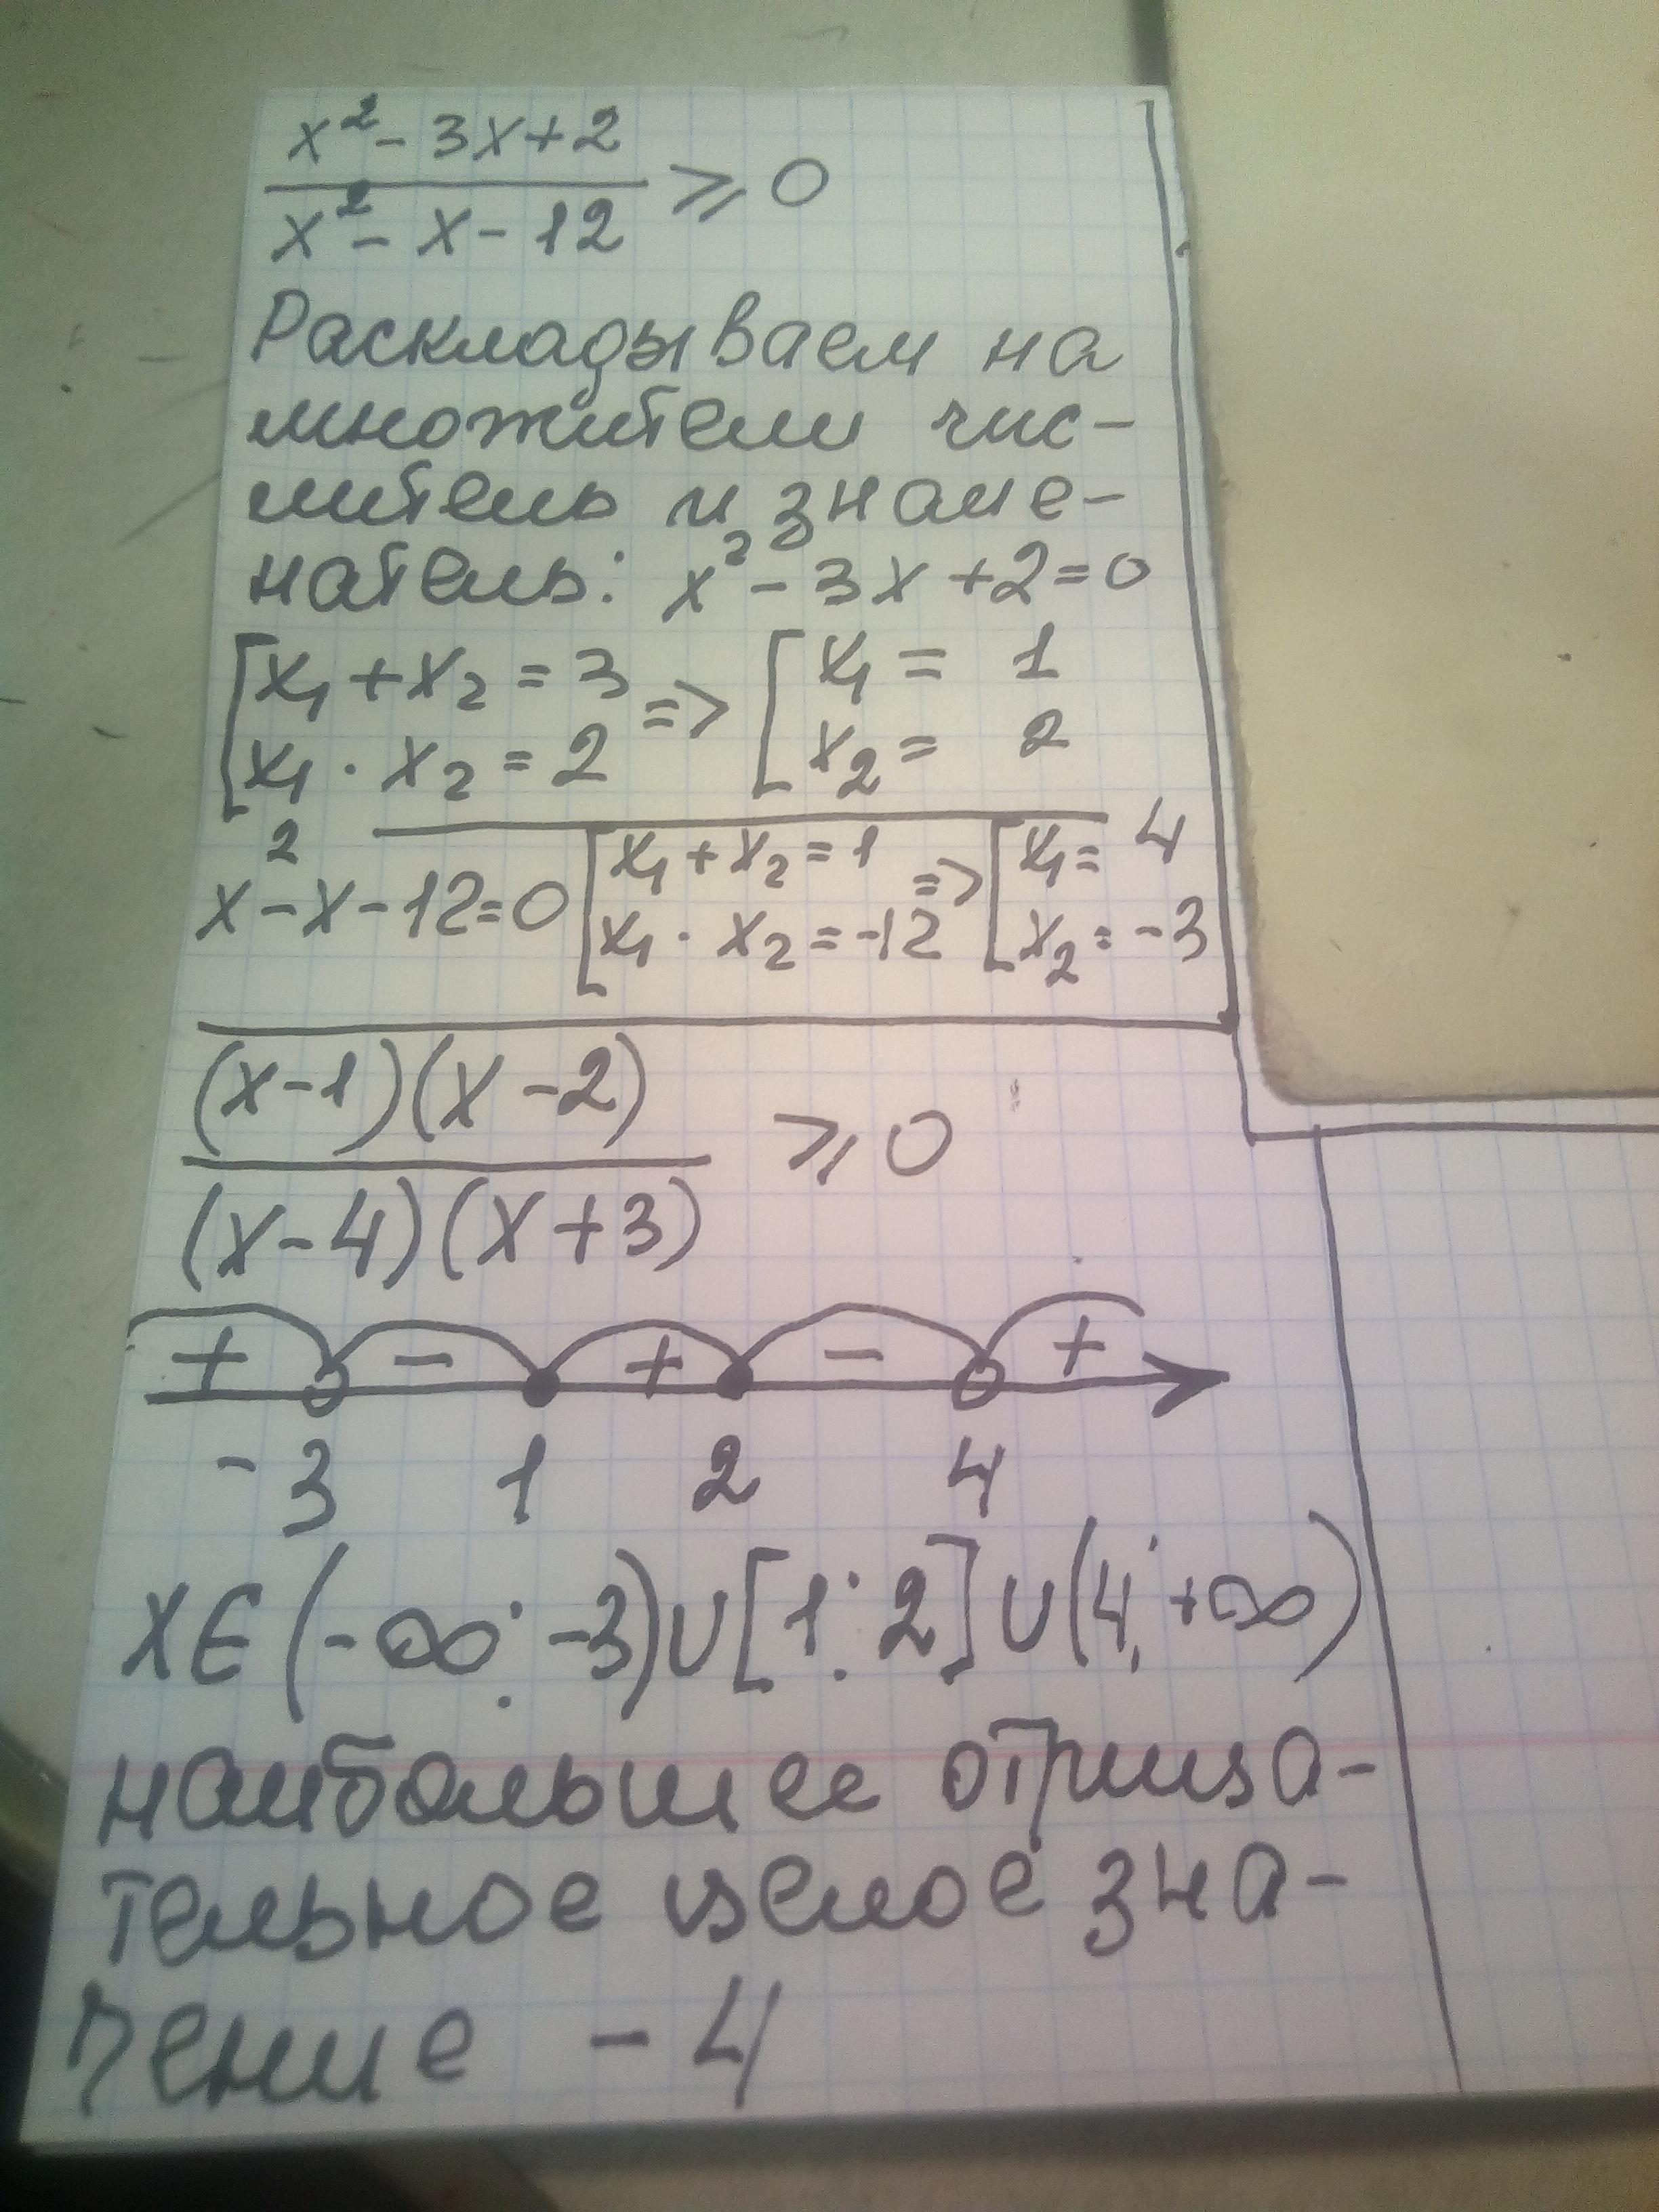 x² - 3x + 2
x² - x - 12 ⩾ 0
Раскладываем на
множители чис-
литель и знаме-
натель: x² - 3x + 2 = 0
[x₁ + x₂ = 3 => [x₁ = 1
[x₁ · x₂ = 2 [x₂ = 2
x² - x - 12 = 0 [x₁ + x₂ = 1 => [x₁ = 4
[x₁ · x₂ = -12 [x₂ = -3
(x-1)(x-2)
(x-4)(x+3) ⩾ 0
+ - + - +
-3 1 2 4
x∈(-∞; -3)∪[1; 2]∪(4; +∞)
наибольшее отрица-
тельное целое зна-
чение -4